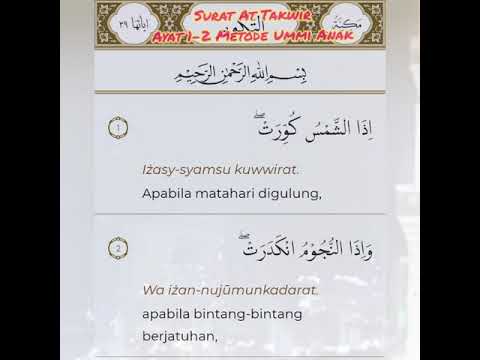 اياتها ٢٩
التكوير
مكية
Surat At Takwir
Ayat 1-2 Metode Ummi Anak
بِسْمِ اللّٰهِ الرَّحْمٰنِ الرَّحِيْمِ
١
اِذَا الشَّمْسُ كُوِّرَتْۖ
Iżasy-syamsu kuwwirat.
Apabila matahari digulung,
2
وَاِذَا النُّجُوْمُ انْكَدَرَتْۖ
Wa iżan-nujūmunkadarat.
apabila bintang-bintang
berjatuhan,